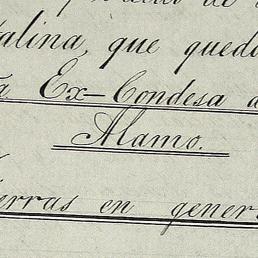 talina, que queda
Ex-Condesa d
Alamo.
ierras en gener